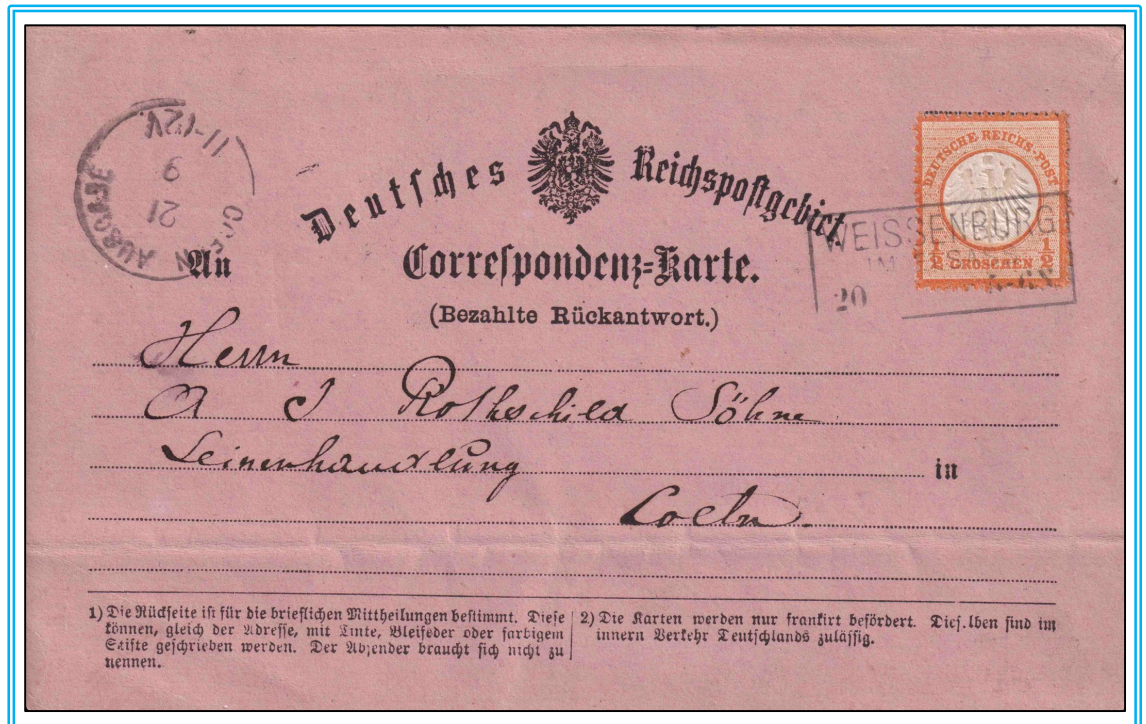 Deutsches Reichspostgebiet.
Correspondenz=Karte.
(Bezahlte Rückantwort.)
AUSGABE
21
9
11-12V.
DEUTSCHE REICHS-POST
½ GROSCHEN ½
WEISSENBURG
IM
20
An
Herrn
A J Rothschild Söhne
Leinenhandlung
in
Coeln.
1) Die Rückseite ist für die brieflichen Mittheilungen bestimmt. Diese
können, gleich der Adresse, mit Tinte, Bleifeder oder farbigem
Stifte geschrieben werden. Der Absender braucht sich nicht zu
nennen.
2) Die Karten werden nur frankirt befördert. Dieselben sind im
innern Verkehr Deutschlands zulässig.